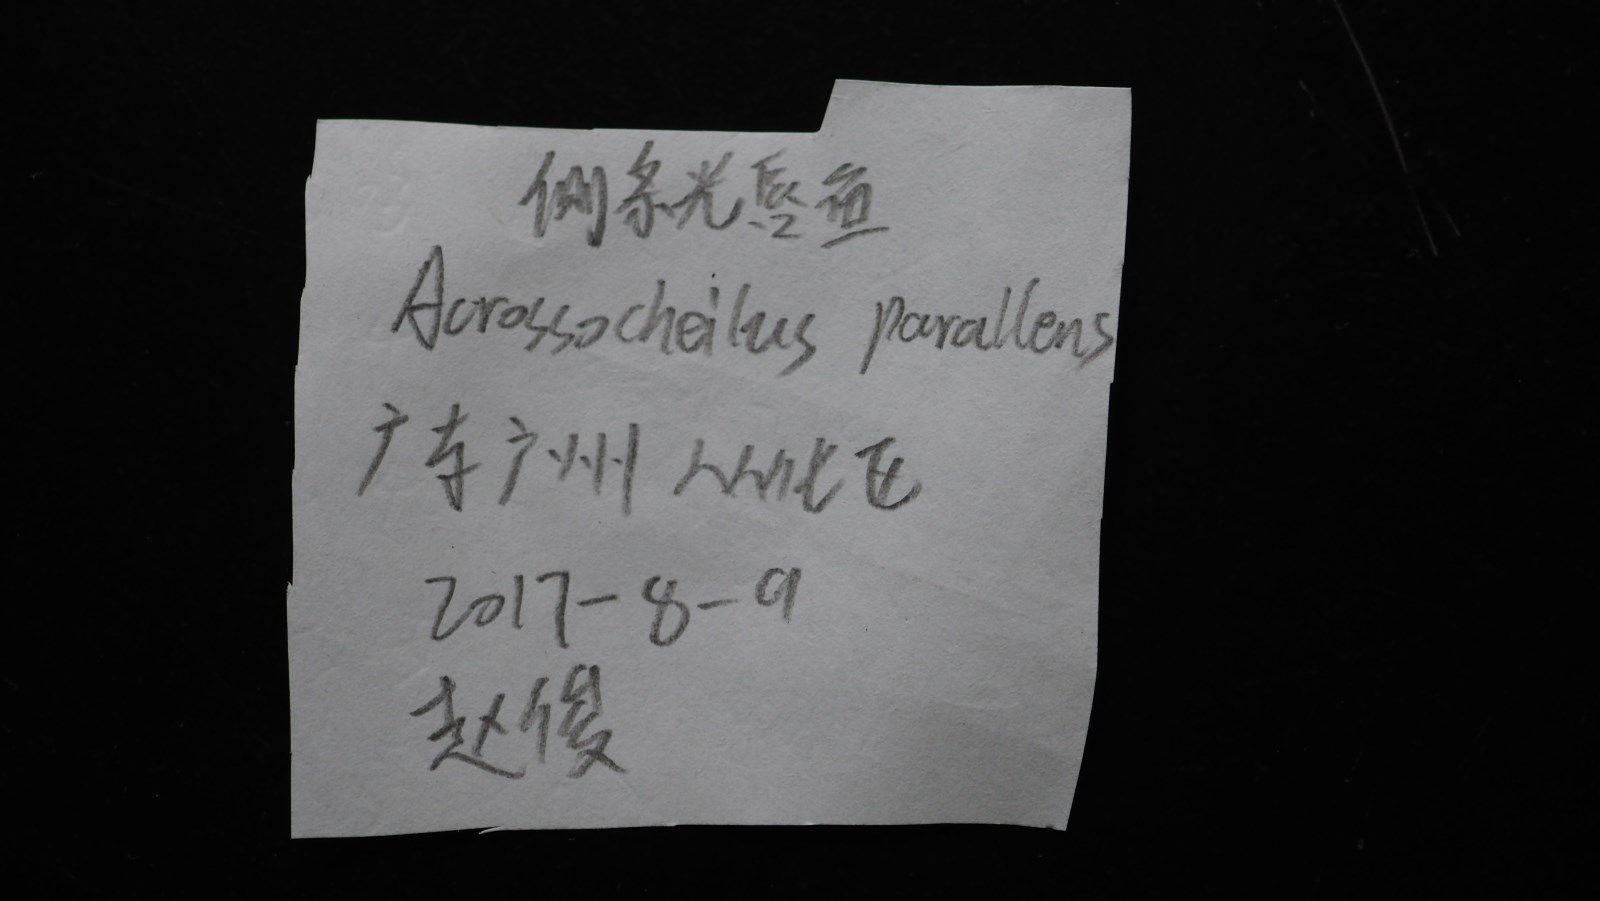 侧条光唇鱼
Acrossocheilus parallens
广东广州从化区
2017-8-9
赵俊